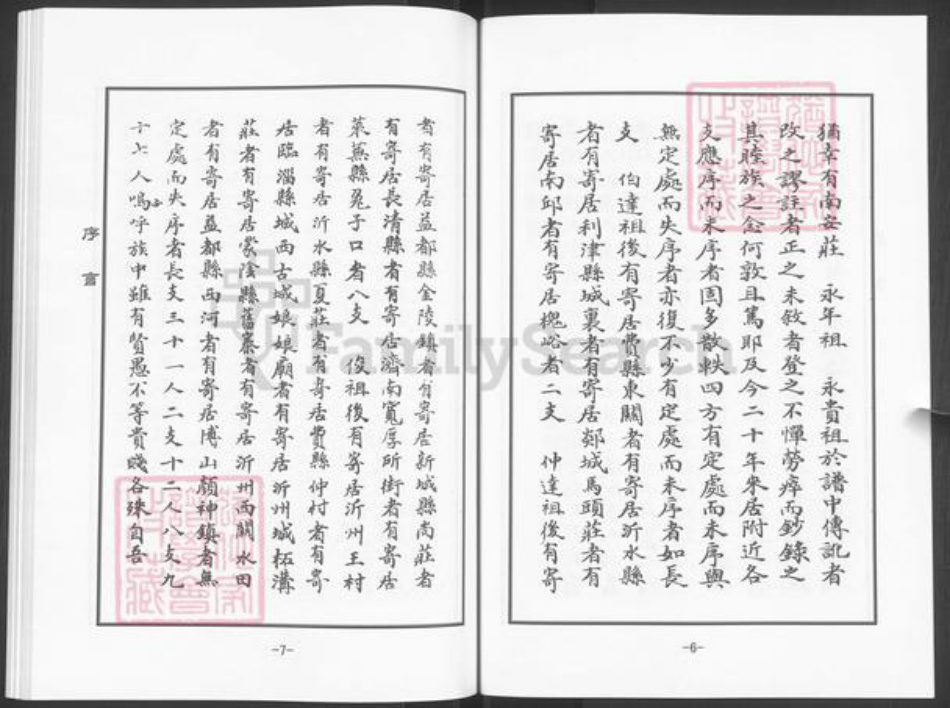 猶幸有南安莊 永年祖 永貴祖於譜中傳訛者
改之謬註者正之未敘者登之不憚勞瘁而鈔錄之
其睦族之念何敦且篤耶及今二十年來居附近各
支應序而未序者固多散軼四方有定處而未序與
無定處而失序者亦復不少有定處而未序者如長
支 伯達祖後有寄居費縣東關者有寄居沂水縣
者有寄居利津縣城裏者有寄居郯城馬頭莊者有
寄居南邱者有寄居槐峪者二支 仲達祖後有寄
-6-
者有寄居益都縣金陵鎮者有寄居新城縣尚莊者
有寄居長清縣者有寄居濟南寬厚所街者有寄居
萊蕪縣兔子口者八支 俊祖後有寄居沂州王村
者有寄居沂水縣夏莊者有寄居費縣仲村者有寄
居臨淄縣城西古城娘娘廟者有寄居沂州城柘溝
莊者有寄居蒙陰縣舊寨者有寄居沂州西關水田
者有寄居益都縣西河者有寄居博山顏神鎮者無
定處而失序者長支三十一人二支十二人八支九
十七人嗚呼族中雖有賢愚不等貴賤各殊自吾
序言
-7-
FamilySearch